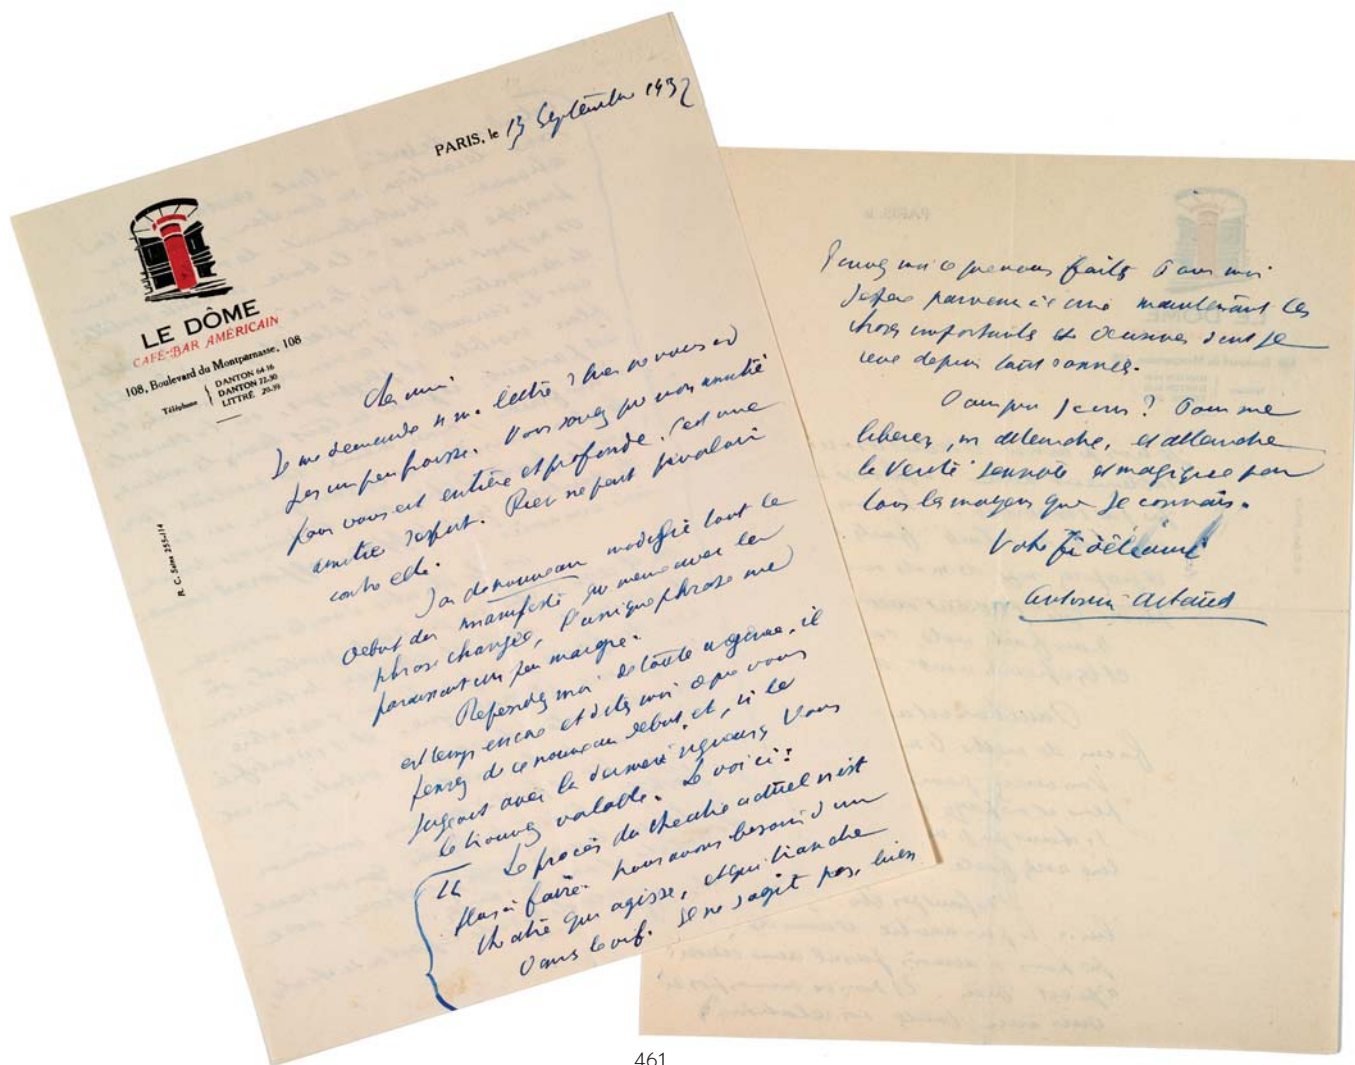 PARIS, le 13 Septembre 1932
LE DÔME
CAFÉ-BAR AMÉRICAIN
108, Boulevard du Montparnasse, 108
Téléphone
DANTON 64-16
DANTON 22-30
LITTRÉ 20-39
R. C. Seine 255-114
Cher ami
Je me demande si ma lettre d'hier ne vous a
pas un peu froissé. Vous savez que mon amitié
pour vous est entière et profonde. C'est une
amitié d'esprit. Rien ne peut prévaloir
contre elle.
J'ai de nouveau modifié tout le
début du manifeste que même avec la
phrase changée, l'unique phrase me
paraissait un peu maigre.
Répondez moi de toute urgence, il
est temps encore et dites moi ce que vous
pensez de ce nouveau début et, si le
jugeant avec la dernière rigueur, vous
le trouvez valable. Le voici :
" Le procès du théâtre actuel n'est
plus à faire. nous avons besoin d'un
théâtre qui agisse, et qui tranche
dans le vif. Il ne s'agit pas, bien
ce que vous faites Pour moi
J'espère parvenir à maintenant les
choses importantes et dont je
rêve depuis tant d'années.
Pourquoi j'écris ? Pour me
libérer, m'atteindre, et atteindre
la Vérité et magique par
tous les moyens que je connais.
Votre fidèle ami
Antonin Artaud
461